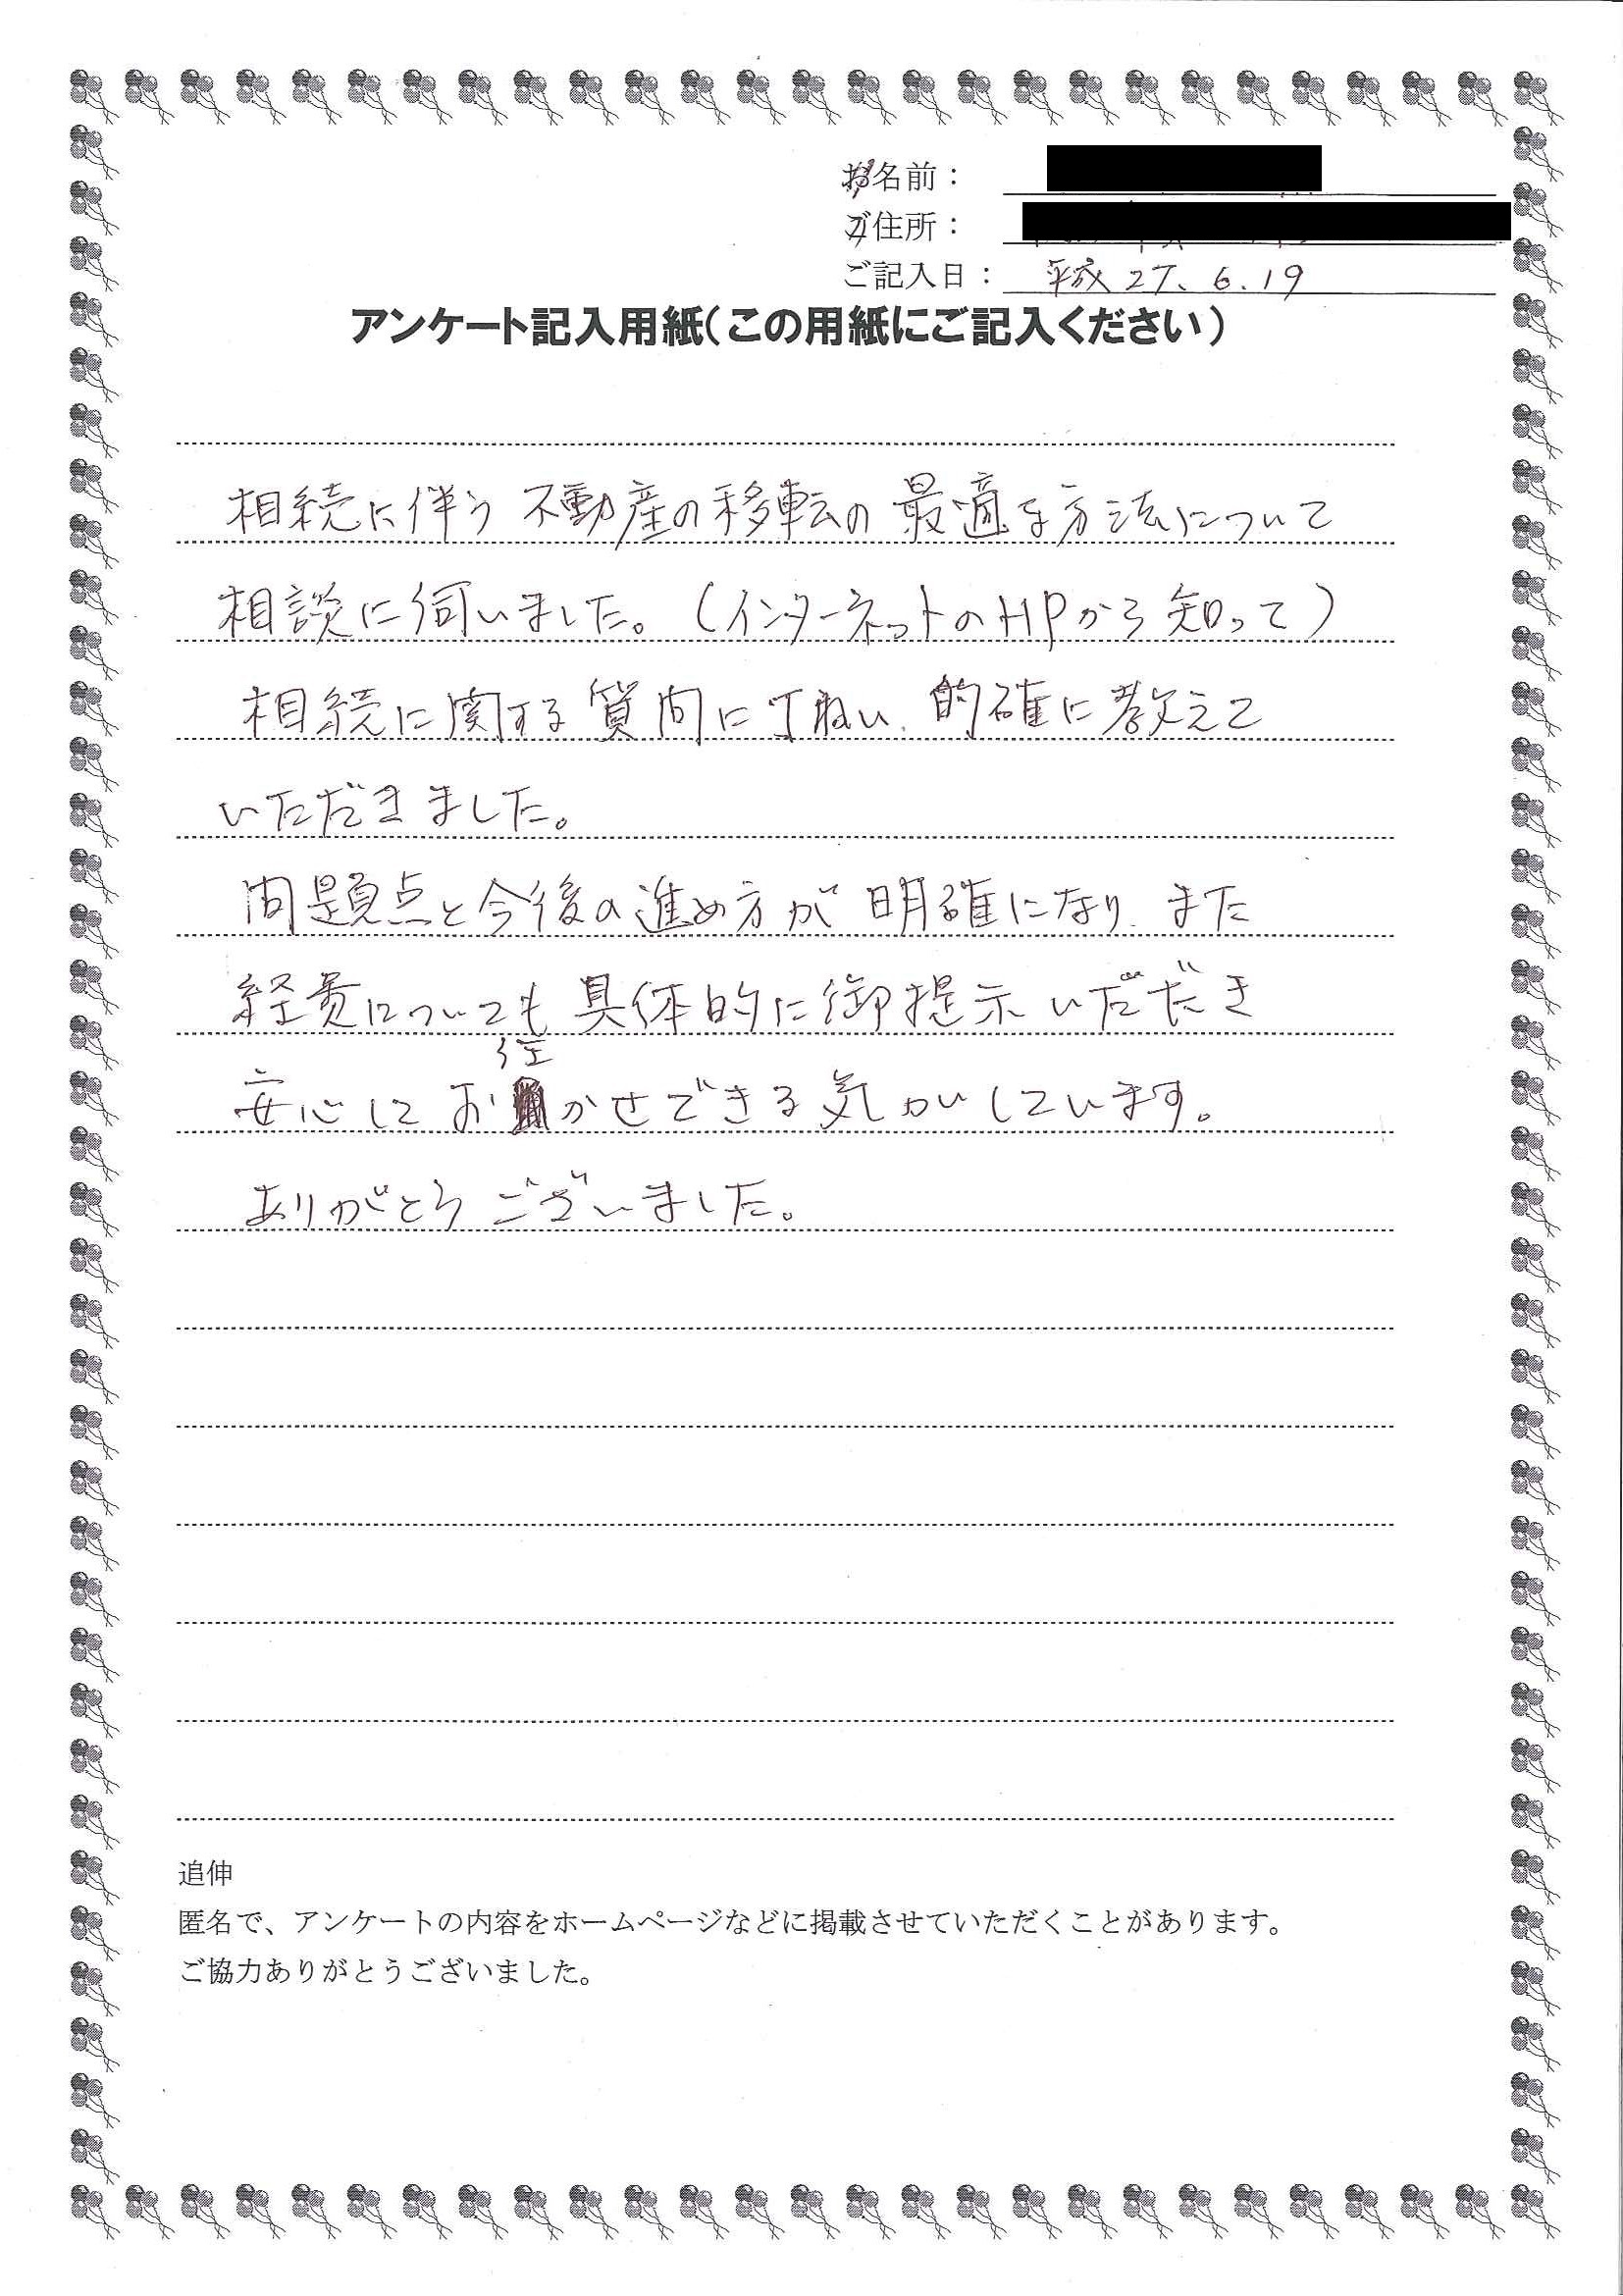 お名前：
ご住所：
ご記入日： 平成 27. 6. 19
アンケート記入用紙（この用紙にご記入ください）
相続に伴う不動産の移転の最適な方法について
相談に伺いました。（インターネットのHPから知って）
相続に関する質問に丁ねい、的確に教えて
いただきました。
問題点と今後の進め方が明確になり、また
経費についても具体的に御提示いただき
安心してお任かせできる気がしています。
ありがとうございました。
追伸
匿名で、アンケートの内容をホームページなどに掲載させていただくことがあります。
ご協力ありがとうございました。